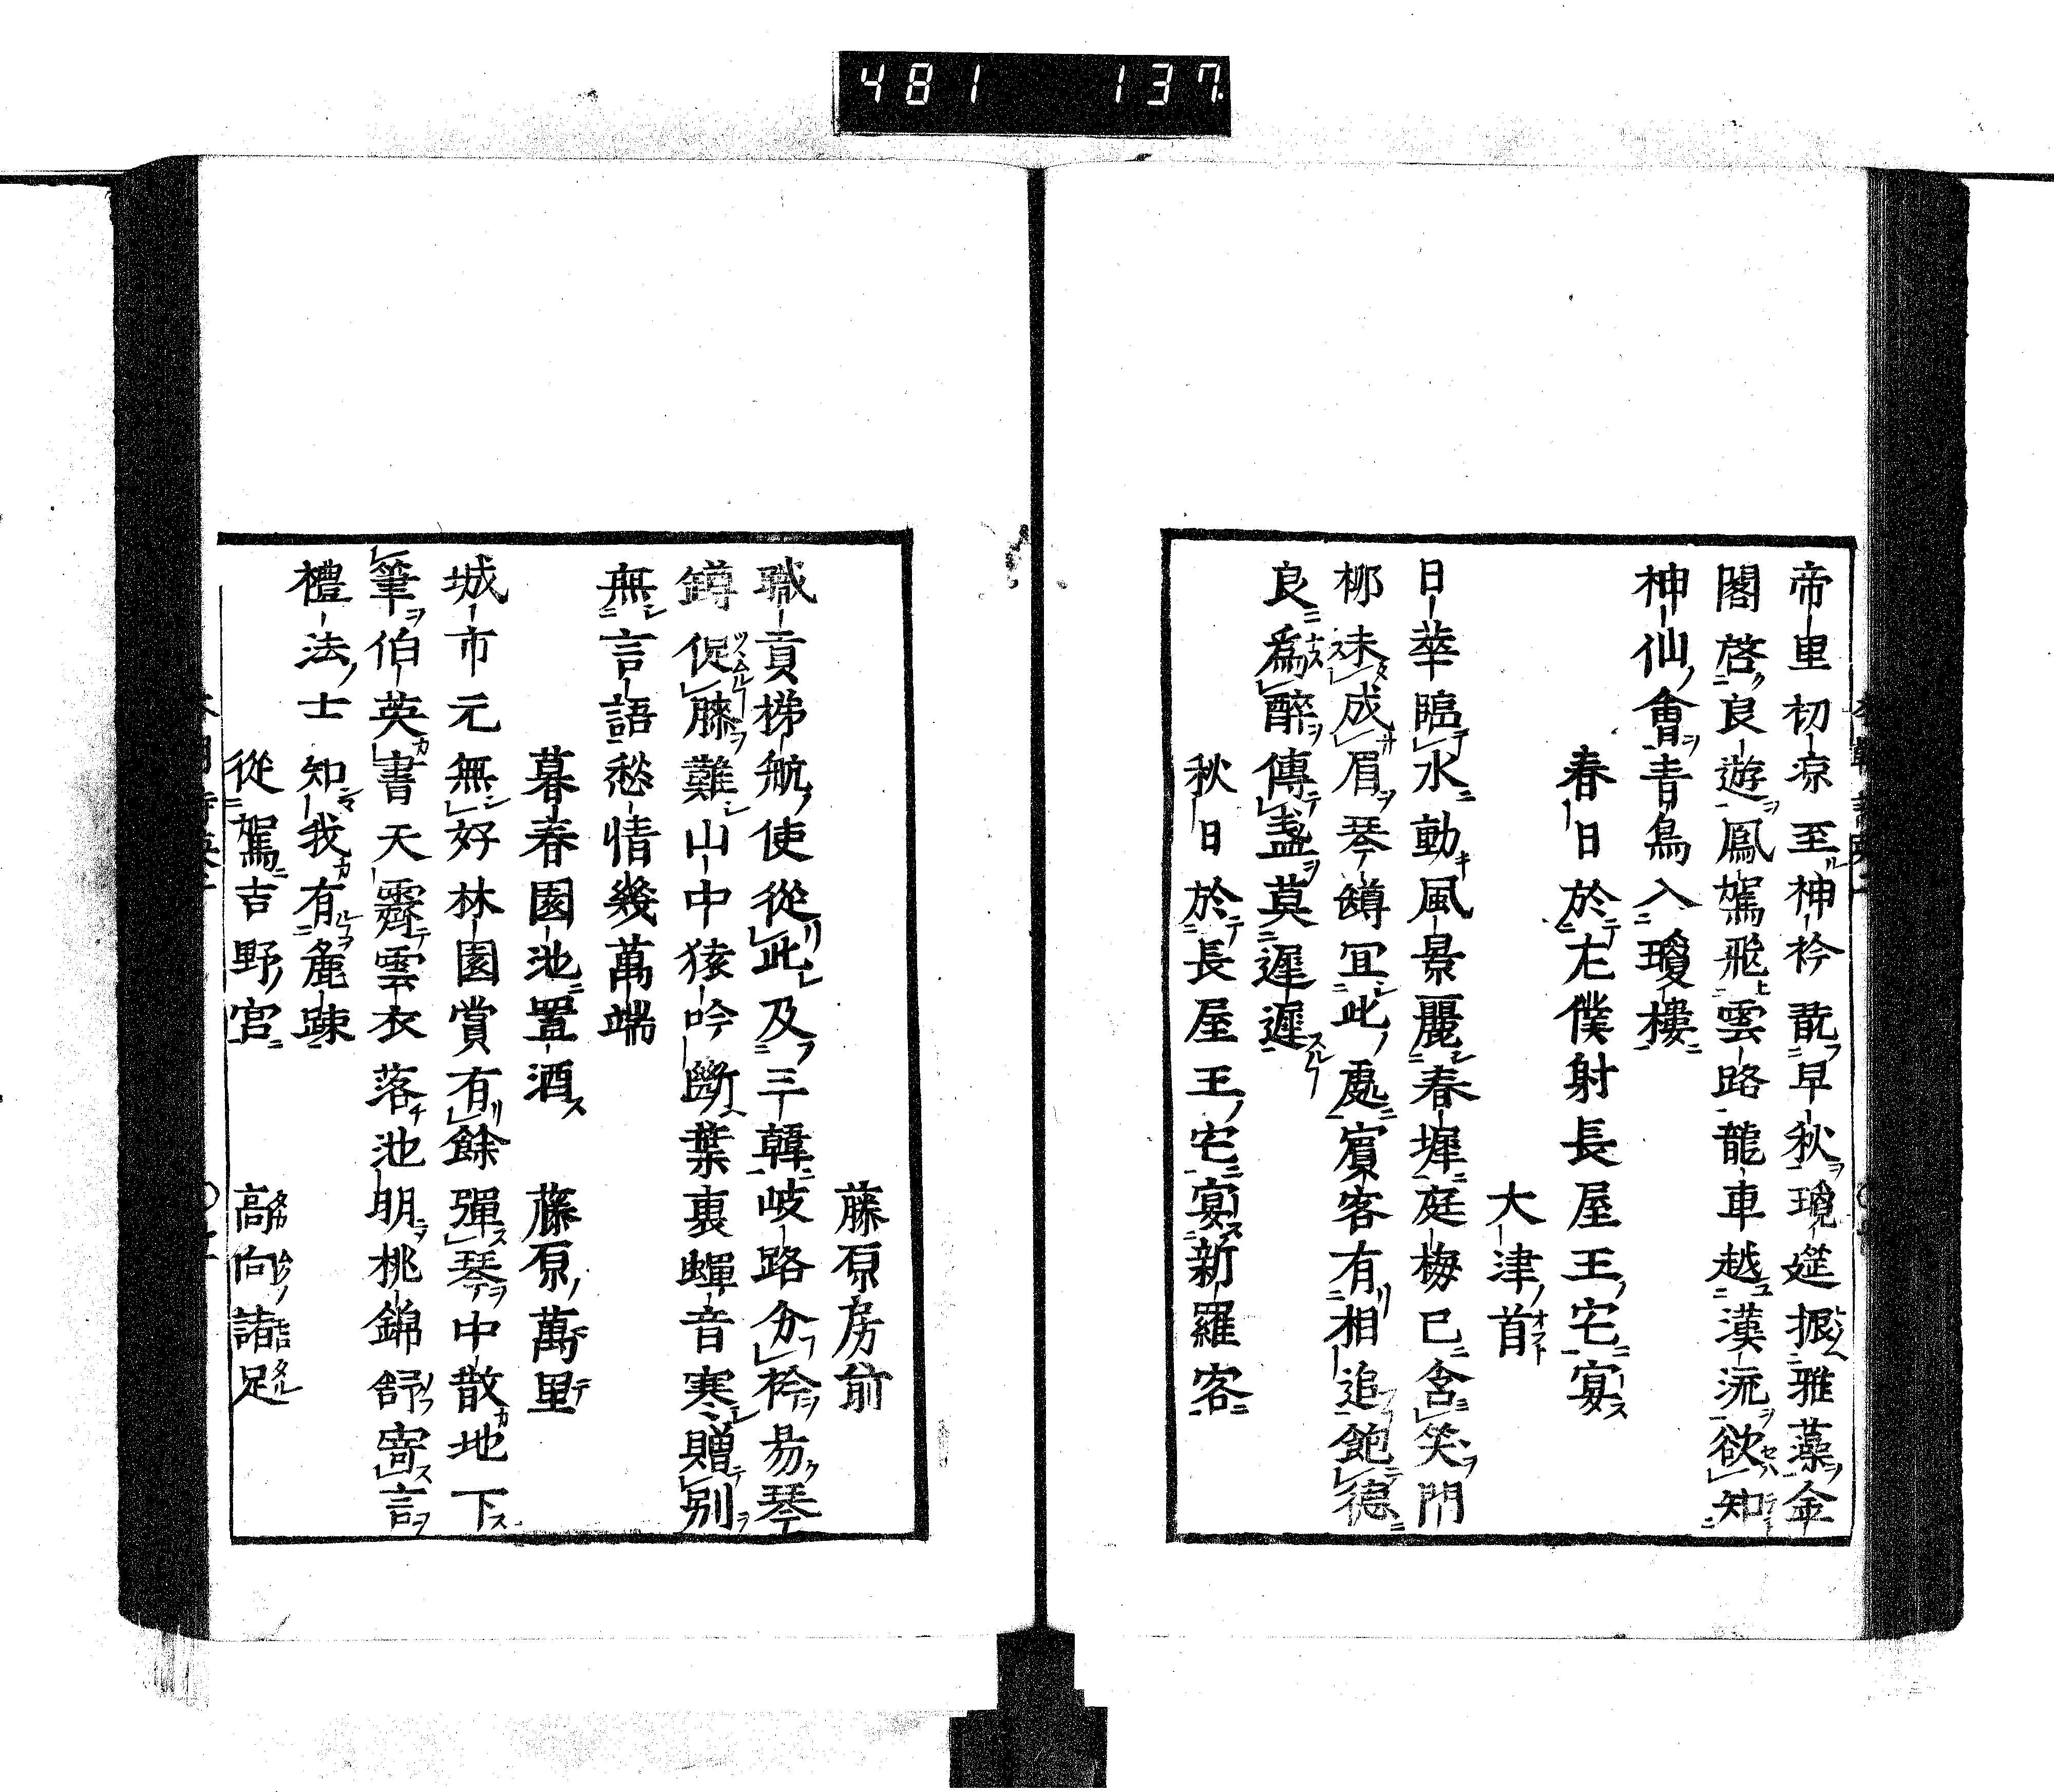 481 137
帝里初凉至神衿翫早秋瓊筵振雅藻金
閣啓良遊鳳駕飛雲路龍車越漢流欲知
神仙會青鳥入瓊樓
春日於左僕射長屋王宅宴
大津首
日華臨水動風景麗春墀庭梅已含笑門
柳未成眉琴罇宜此處賓客有相追飽德
良爲醉傳盞莫遲遲
秋日於長屋王宅宴新羅客
藤原房前
職貢梯航使從此及三韓岐路分衿易琴
罇促膝難山中猿吟斷葉裏蟬音寒贈別
無言語愁情幾萬端
暮春園池置酒 藤原萬里
城市元無好林園賞有餘彈琴中散地下
筆伯英書天霽雲衣落池明桃錦舒寄言
禮法士知我有麁踈
從駕吉野宮 高向諸足